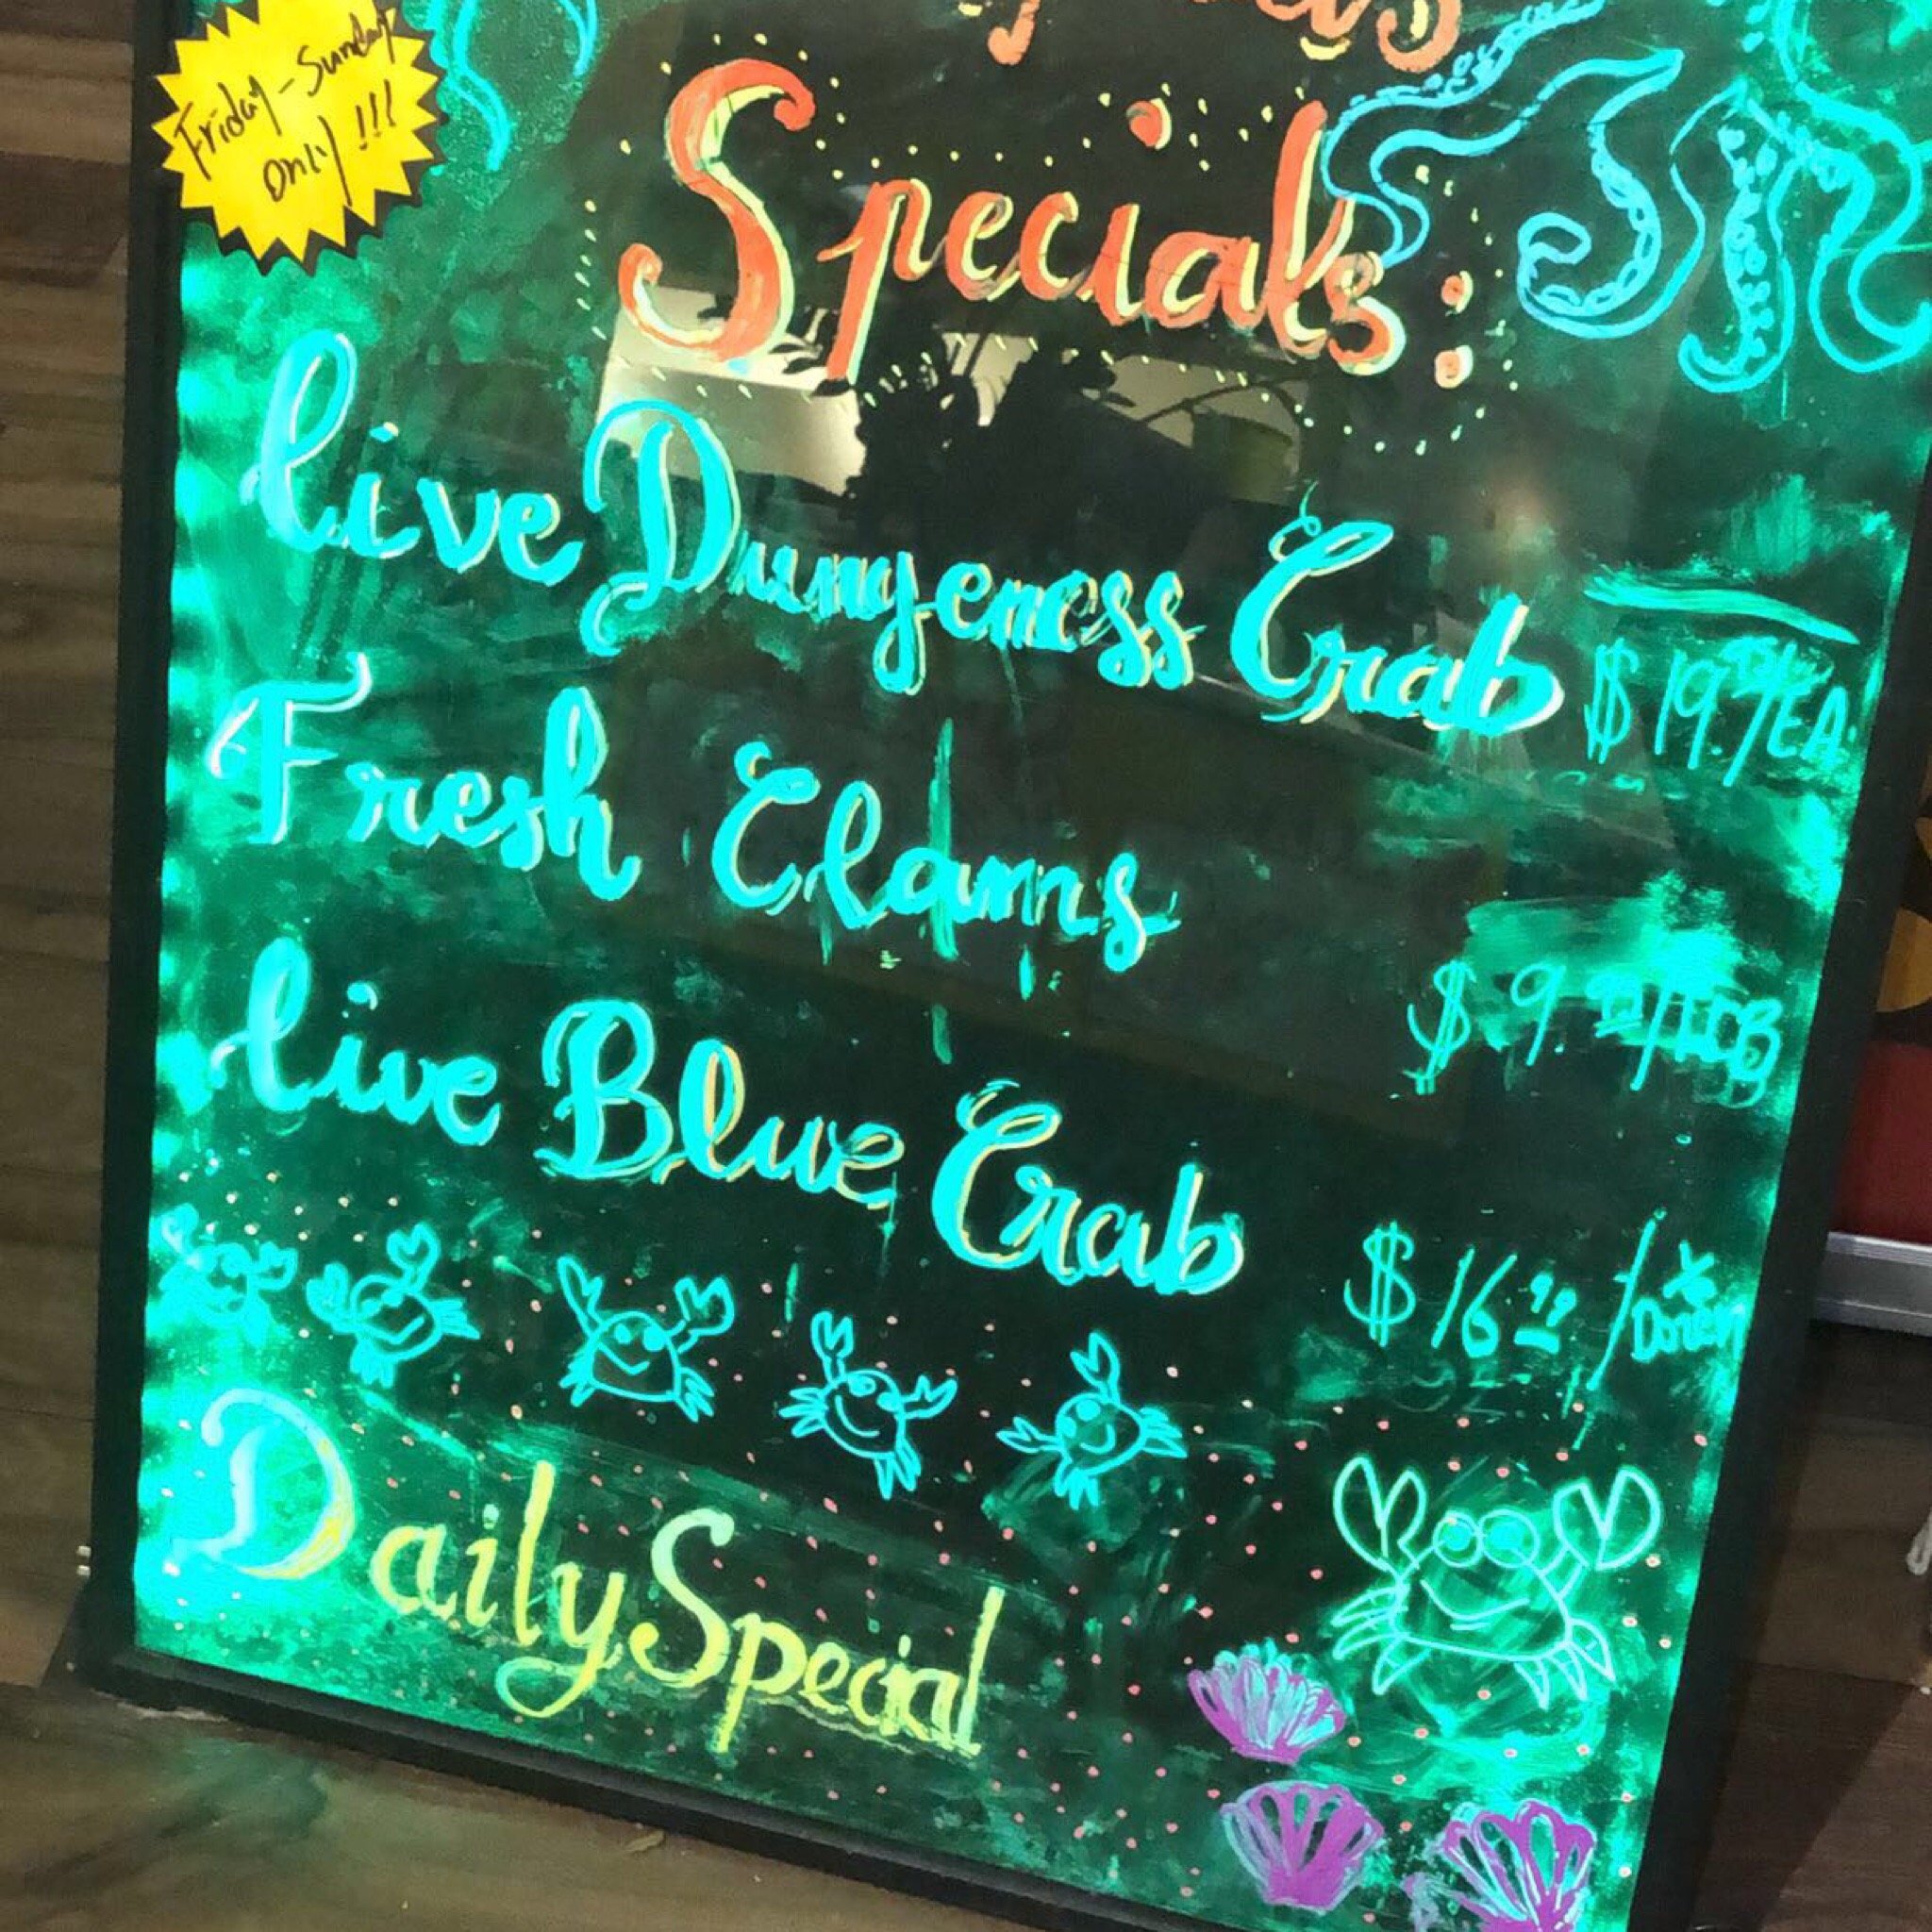 Friday-Sunday
only!!!
Specials:
Live Dungeness Crab $19.99/EA.
Fresh Clams
$9.99/LB
Live Blue Crab
$16.99/Dozen
Daily Special